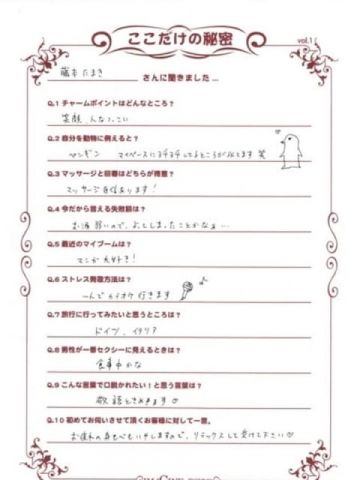 ここだけの秘密
vol.1
藤本 たまき さんに聞きました...
Q.1 チャームポイントはどんなところ？
笑顔、人なつこい
Q.2 自分を動物に例えると？
ペンギン マイペースに 笑
Q.3 マッサージと回春はどちらが得意？
マッサージ自信あります！
Q.4 今だから言える失敗談は？
お酒 弱いので、 しまったことかなぁ…
Q.5 最近のマイブームは？
マンガ大好き！
Q.6 ストレス発散方法は？
一人でカラオケ行きます
Q.7 旅行に行ってみたいと思うところは？
ドイツ、イタリア
Q.8 男性が一番セクシーに見えるときは？
食事中かな
Q.9 こんな言葉で口説かれたい！と思う言葉は？
敬語ときめきます♡
Q.10 初めてお伺いさせて頂くお客様に対して一言。
お疲れの身も心もいやしますので、リラックスして受けて下さい♡